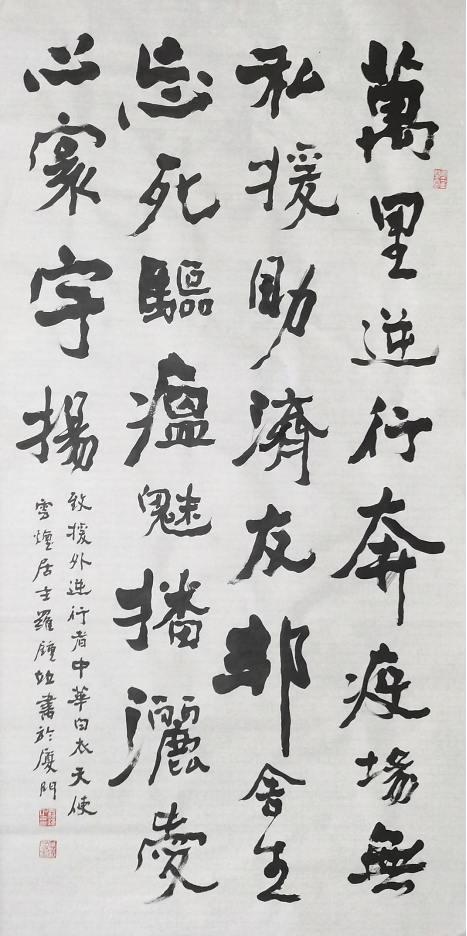 萬里逆行奔疫場無
私援助濟友邦舍生
忘死驅瘟魅播灑愛
心寰宇揚
致援外逆行者中華白衣天使
居士羅鍾 書於廈門